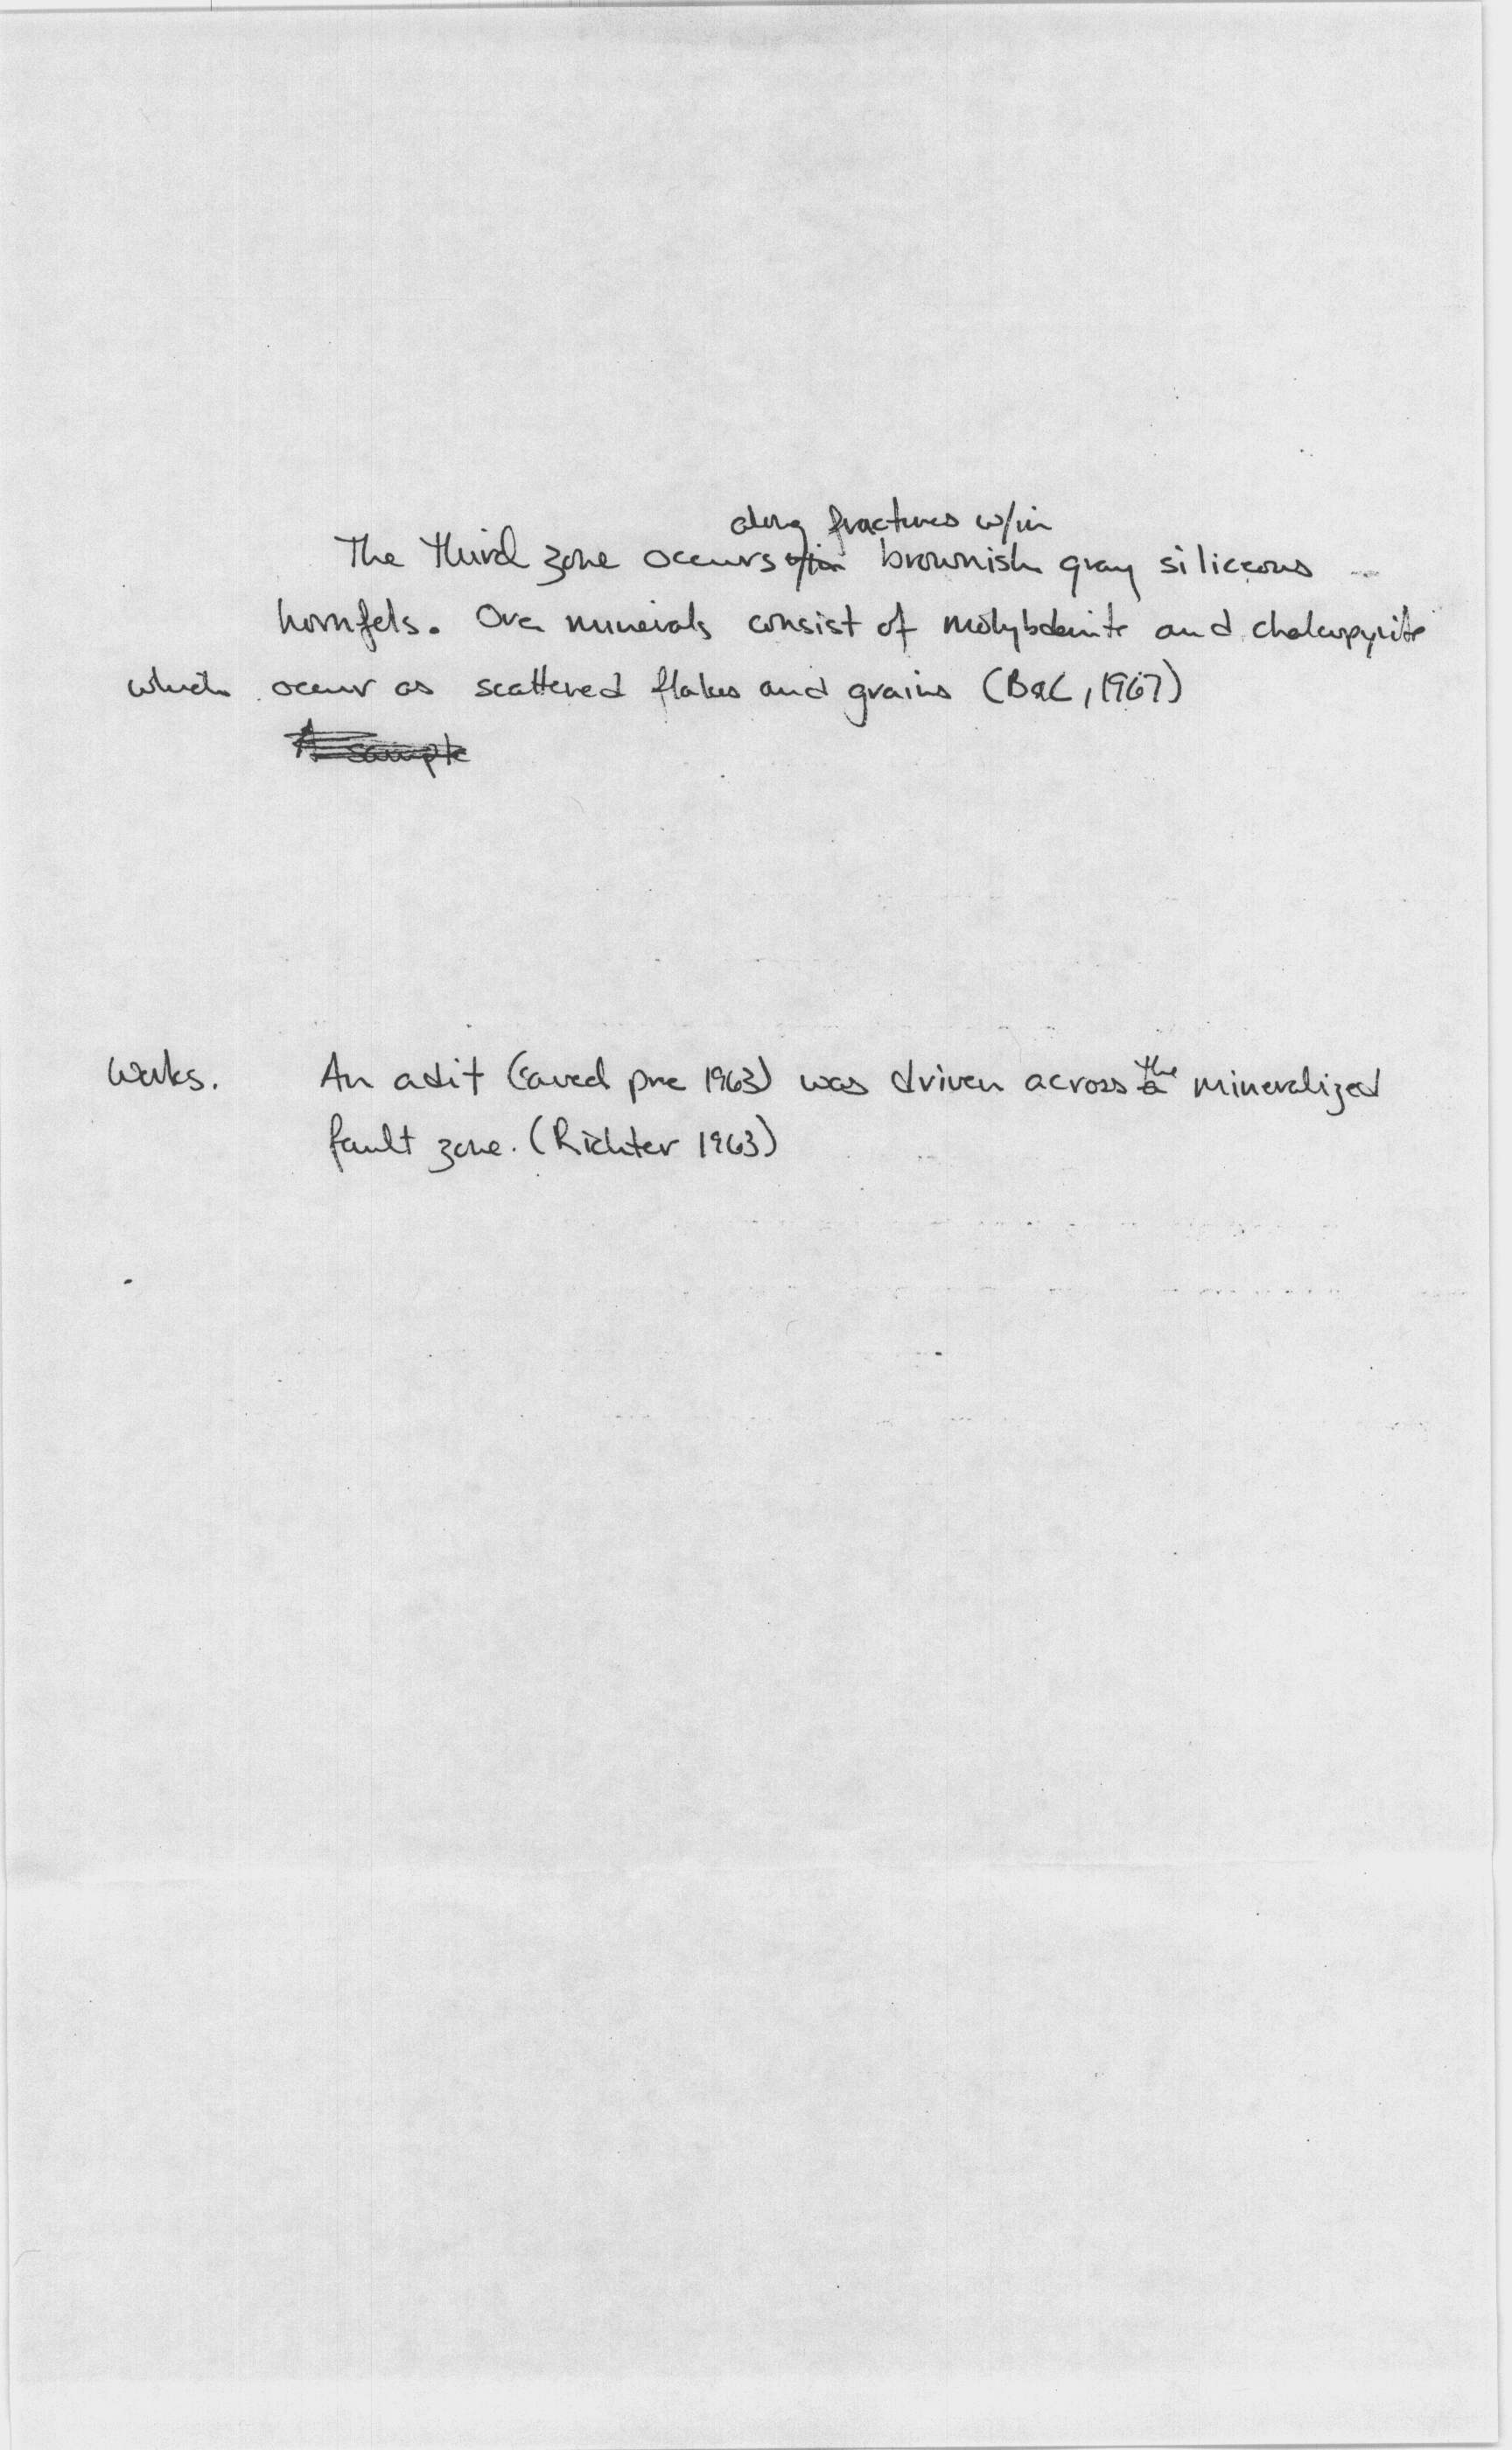 along fractures w/in
The third zone occurs w/in brownish gray siliceous
hornfels. Ore minerals consist of molybdenite and chalcopyrite
which occur as scattered flakes and grains (B&C, 1967)
A sample
Works. An adit (caved pre 1963) was driven across a the mineralized
fault zone. (Richter 1963)